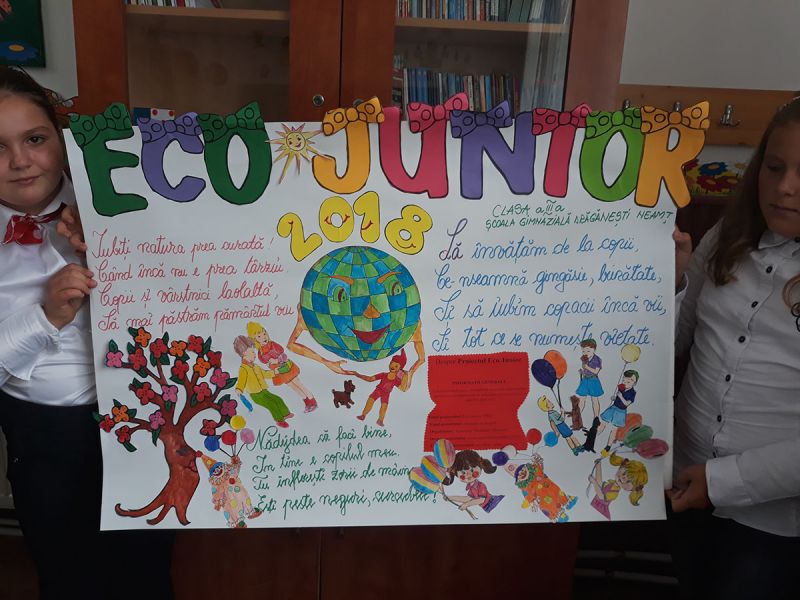 ECO JUNIOR
2018
CLASA a III a
ŞCOALA GIMNAZIALĂ DRĂGĂNEŞTI NEAMŢ
Iubiţi natura prea curată!
Când încă nu e prea târziu.
Copii şi vârstnici laolaltă,
Să mai păstrăm pământul viu
Să învăţăm de la copii,
Ce-nseamnă gingăşie, bunătate,
Şi să iubim copacii încă vii,
Şi tot ce se numeşte vietate.
Despre Proiectul Eco-Junior
INFORMAŢII GENERALE
Nădejdea că faci bine,
În tine e copilul meu.
Tu înfloreşti zorii de mâine
Eşti peste neguri, curcubeu!